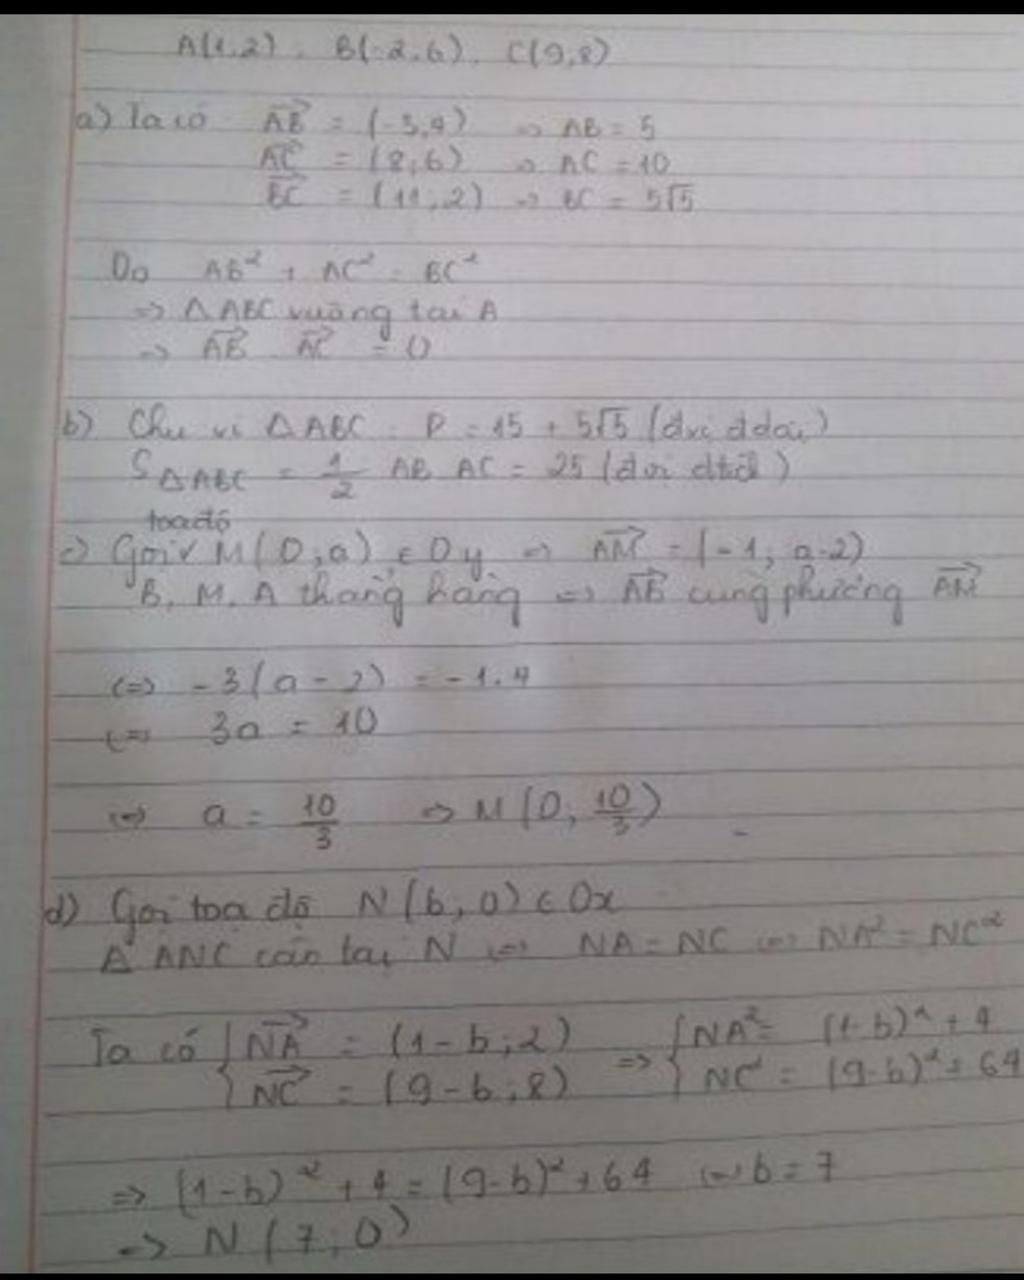 A(1,2). B(-2,6), C(9,8)
a) Ta có AB = (-3,4) => AB = 5
AC = (8,6) => AC = 10
BC = (11,2) => BC = 5√5
Do AB² + AC² = BC²
=> Δ ABC vuông tại A
=> AB . AC = 0
b) Chu vi Δ ABC : P = 15 + 5√5 (đvi đ dài)
S Δ ABC = 1/2 AB AC = 25 (đvi dtích)
toạ độ
c) Gọi M(0,a) ∈ Oy => AM = (-1, a-2)
B, M, A thẳng hàng => AB cùng phương AM
<=> -3(a-2) = -1.4
<=> 3a = 10
<=> a = 10/3 => M(0, 10/3)
d) Gọi toạ độ N(b,0) ∈ Ox
Δ ANC cân tại N <=> NA = NC <=> NA² = NC²
Ta có { NA = (1-b;2) => { NA² = (1-b)² + 4
NC = (9-b;8) NC² = (9-b)² + 64
=> (1-b)² + 4 = (9-b)² + 64 <=> b = 7
=> N(7;0)